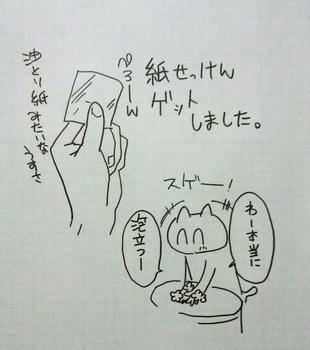 紙せっけん
ゲット
しました。
ぺろーん
油とり紙みたいな
うすさ
スゲー!
わー本当に
泡立つー